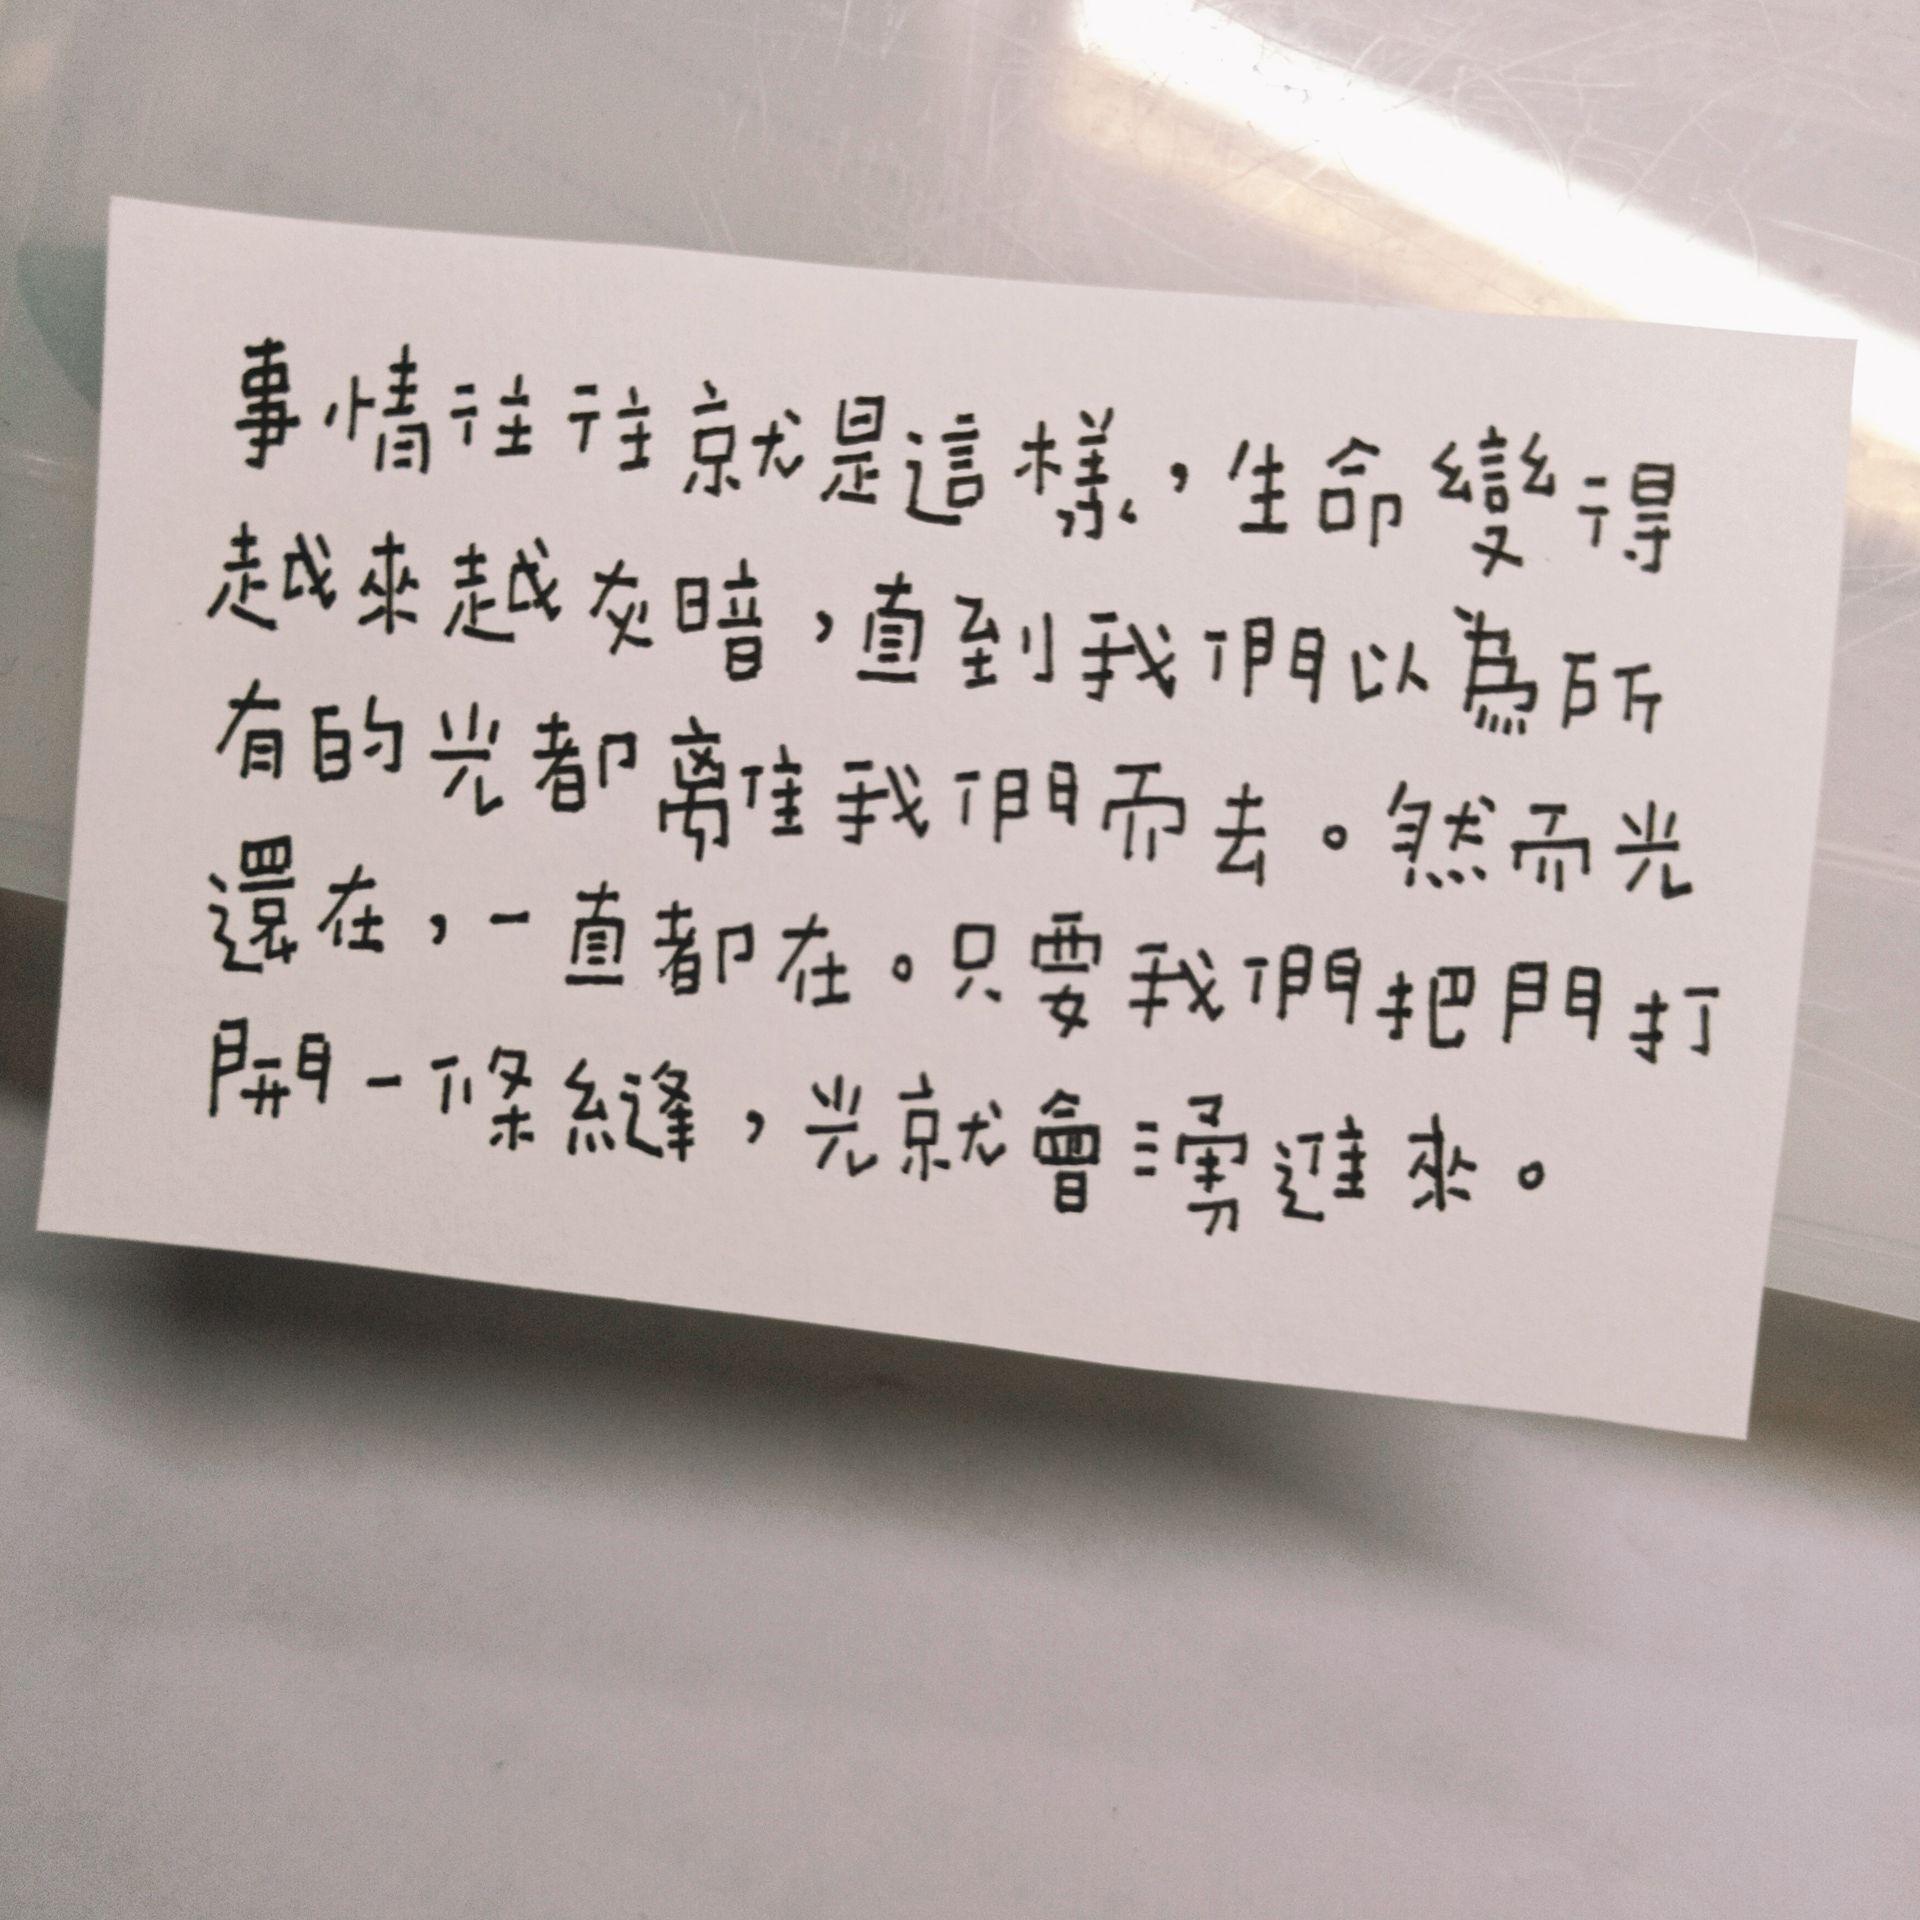 事情往往就是這樣，生命變得
越來越灰暗，直到我們以為所
有的光都離我們而去。然而光
還在，一直都在。只要我們把門打
開一條縫，光就會湧進來。